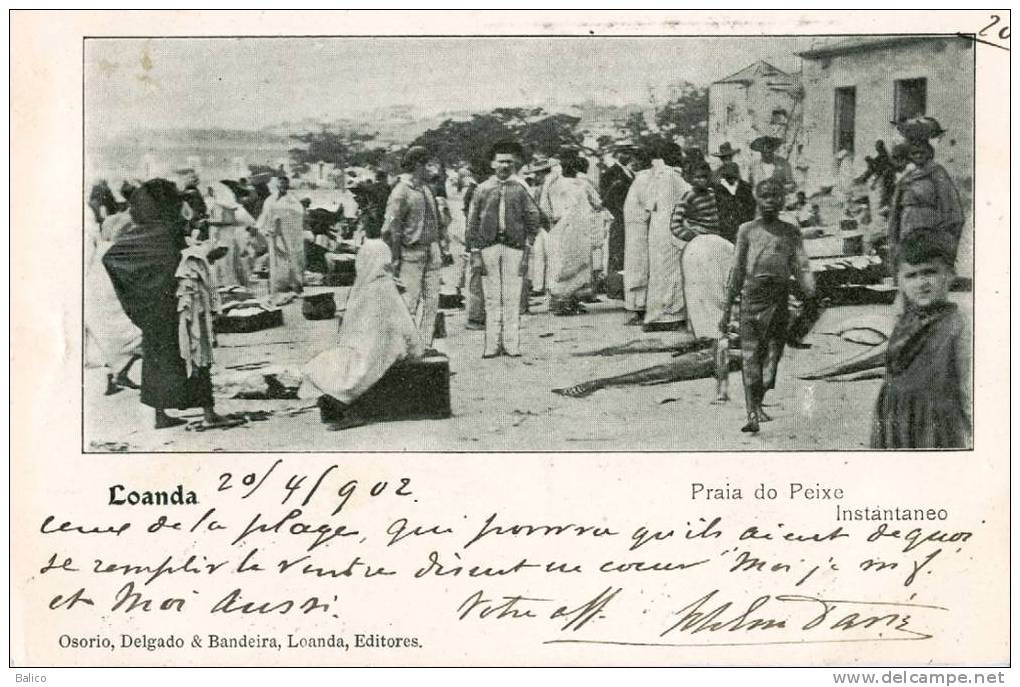 20
Loanda 20/4/902.
Praia do Peixe
Instantaneo
ceux de la plage, qui pourvu qu'ils aient de quoi
se remplir le ventre disent en coeur "Moi je m'f.
et Moi Aussi.
Votre aff.
Osorio, Delgado & Bandeira, Loanda, Editores.
Balico
www.delcampe.net